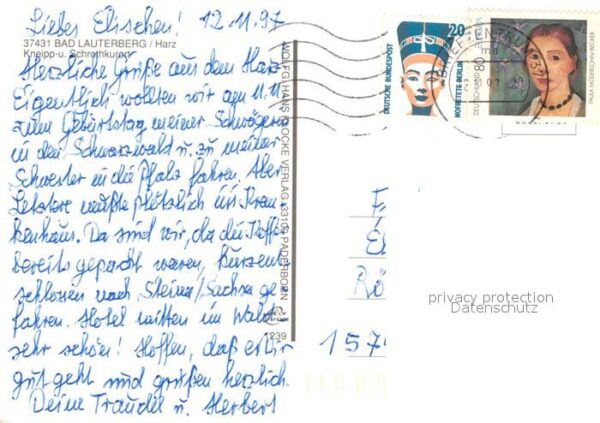 Liebes Elischen! 12.11.97
37431 BAD LAUTERBERG / Harz
Kneipp-u. Schrothkurort
Herzliche Grüße aus dem Harz
Eigentlich wollten wir am 11.11
zum Geburtstag meiner Schwägerin
in den Schwarzwald u. zu meiner
Schwester in die Pfalz fahren. Aber
Letztere mußte plötzlich ins Kran-
kenhaus. Da sind wir, da die Koffer
bereits gepackt waren, kurzent-
schlossen nach Steina/Sachsa ge-
fahren. Hotel mitten im Wald
sehr schön! Hoffen, daß es Dir
gut geht und grüßen herzlich.
Deine Traudel u. Herbert
WOLFG. HANS KLOCKE VERLAG 33104 PADERBORN
1239
20
DEUTSCHE BUNDESPOST
NOFRETETE BERLIN
DEUTSCHLAND
80
PAULA MODERSOHN-BECKER
BRIEFZENTRUM
F
E
Rö
157
privacy protection
Datenschutz